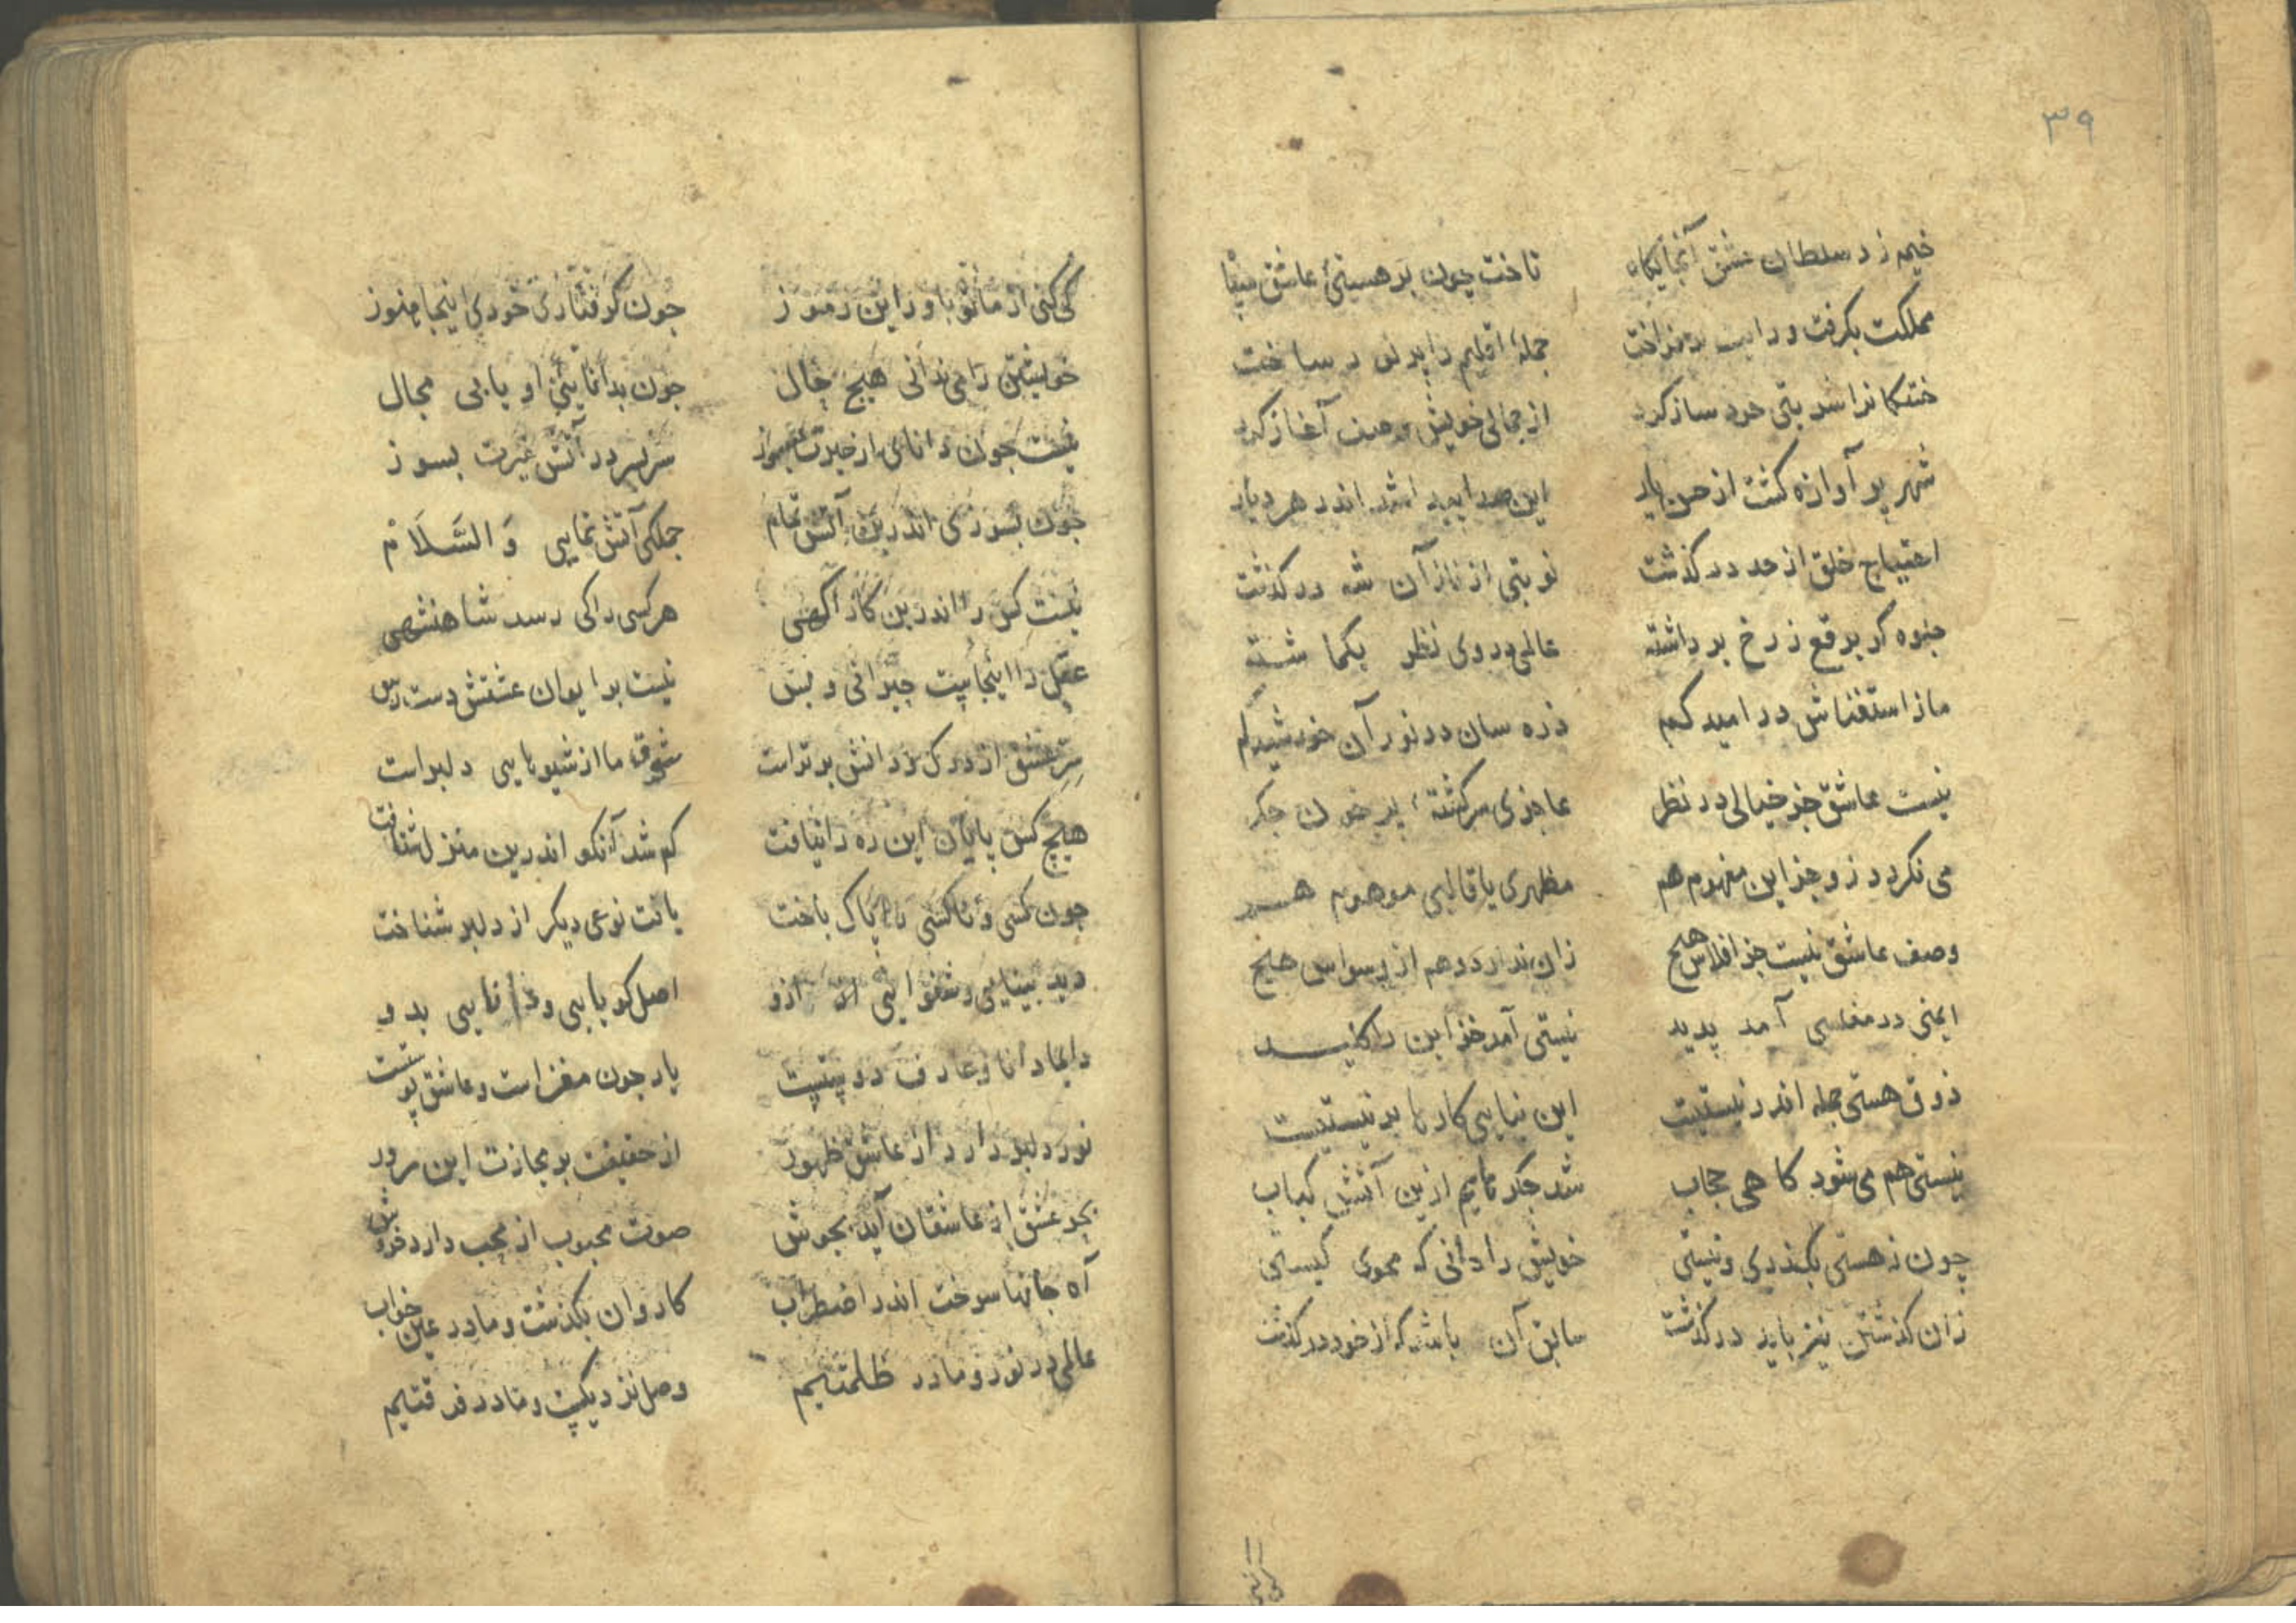 ۳۹
خیمه زد سلطان عشق آنجایکاه
تاخت چون بر هستیٔ عاشق
مملکت بکرفت و رایت برفراخت
جملهٔ اقلیم را در ساخت
نوبتی خود ساز کرد
از جمالی خویش وصف آغاز کرد
شهر پر آوازه کشت از حسن یار
این صدا پیدا شد اندر هر دیار
احتیاج خلق از حد درکذشت
نوبتی از ناز آن شه درکذشت
جلوه کر برقع ز رخ برداشته
عالمی در وی نظر بکماشته
ما ز استغناش در امید کم
ذره سان در نور آن خورشید کم
نیست عاشق جز خیالی در نظر
عاجزی سرکشتهٔ پر خون جکر
می نکردد زو جز این مفهوم هم
مظهری یا قالبی موهوم هم
وصف عاشق نیست جز افلاس هیچ
زان ندارد وهم از وسواس هیچ
ایمنی در مفلسی آمد پدید
نیستی آمد خود این را کلید
ذوق هستی جمله اندر نیستیست
این نیابی کار ما بر نیستیست
نیستی هم می شود کاهی حجاب
شد جکر مایم ازین آتش کباب
چون ز هستی بکذری و نیستی
خویش را دانی که محوی کیستی
زان کذشتن نیز باید درکذشت
سابق آن باشد که از خود درکذشت
کی کنی از ما تو باور این رموز
جون کرفتاری خودی اینجا هنوز
خویشتن را می ندانی هیچ حال
جون بدانایئ او یابی مجال
نیست جون دانای از حیرت بسوز
سر بسر در آتش غیرت بسوز
جون بسوزی اندرین آتش تمام
جملکی آتش نمایی وَالسَّلَامْ
نیست کس را اندرین کار آکهی
هر کسی را کی رسد شاهنشهی
عقل را اینجایست حیرانی و بس
نیست بر ایوان عشقش دست رس
سِرّ عشق از درک و دانش برتر است
شوق ما از شیوهایی دلبر است
هیچ کس پایان این ره را نیافت
کم شد آنکو اندرین منزل شتافت
جون کسی و ناکسی را پاک باخت
یافت نوعی دیکر از دلبر شناخت
دید بینایی و شنوایی ازو
اصل کویایی و دانایی بدو
دایما دانا و عارف دوستیست
یار جون مغز است و عاشق پوستست
نور دلبر دارد از عاشق ظهور
از حقیقت بر مجازت این مرور
بحر عشق از عاشقان آید بجوش
صوت محبوب از محب دارد خروش
آه جانها سوخت اندر اضطراب
کاروان بکذشت و ما در عین خواب
عالمی در نور و ما در ظلمتیم
وصل نزدیکیست و ما در فرقتیم
کی کنی